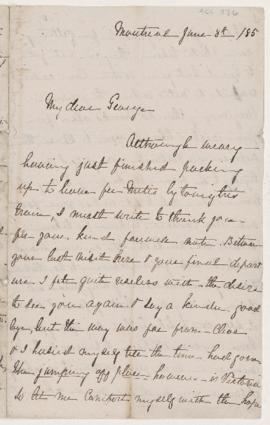 Montreal June 8th 185
My dear George
Although weary
having just finished packing
up to leave for Metis by tonight's
train, I must write to thank you
for your kind farewell note. Between
your last visit here & your final depart
ure I felt quite restless with the desire
to see you again & say a kinder good
bye but the way was far from
& I
the time had gone
jumping off place however is Victoria
so let me comfort myself with the hope